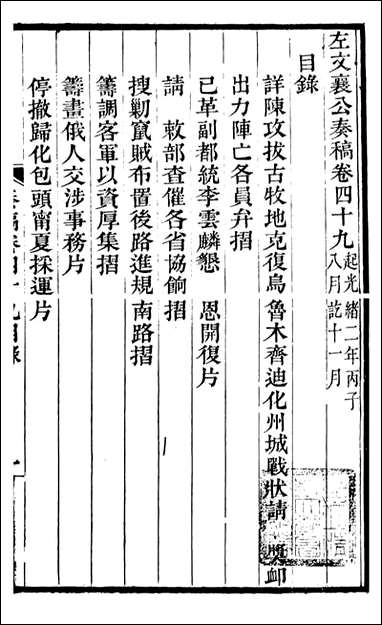 左文襄公奏稿卷四十九 起光緒二年丙子八月訖十一月
目錄
詳陳攻拔古牧地克復烏魯木齊迪化州城戰狀請 獎卹
出力陣亡各員弁摺
已革副都統李雲麟懇 恩開復片
請 敕部查催各省協餉摺
搜剿竄賊布置後路進規南路摺
籌調客軍以資厚集摺
籌畫俄人交涉事務片
停撤歸化包頭甯夏採運片
奏稿卷四十九目錄
一